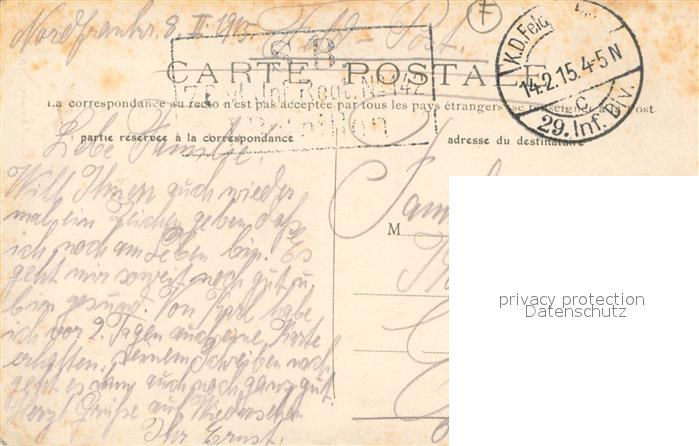 Nordfrankr. 8. II. 1915
Feld-Post.
S. B.
CARTE POSTALE
7. Bad. Inf. Regt. No 142
Bataillon
La correspondance au recto n'est pas acceptée par tous les pays étrangers. (se renseigner à la Post.
partie réservée à la correspondance
adresse du destinataire
K.D.Feld
14.2.15.4-5 N
c
29. Inf. Div.
Liebe Familie
Will Ihnen auch wieder
mal ein Zeichen geben daß
ich noch am Leben bin. Es
geht mir soweit noch gut u.
bin gesund. Von Karl habe
ich vor 2 Tagen auch eine Karte
erhalten. seinem Schreiben nach
geht es ihm auch noch ganz gut
Herzl Grüße auf Wiedersehen
Ihr Ernst.
M
Fam
privacy protection
Datenschutz